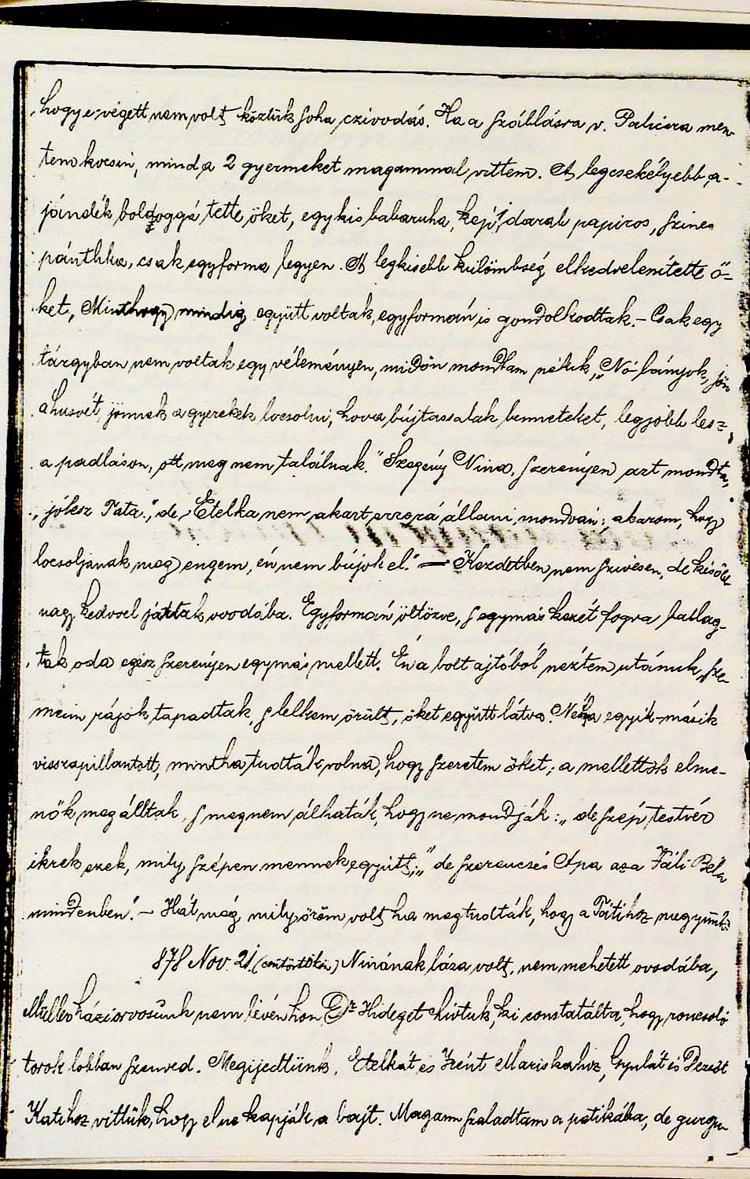 hogy e végett nem volt köztük soha czivodás. Ha a szállásra v. Palicsra men-
tem kocsin, mind a 2 gyermeket magammal vittem. A legcsekélyebb a-
jándék boldoggá tette őket, egy kis babaruha, kép, 1 darab papiros, színes
pánthka, csak egyforma legyen. A legkisebb külömbség elkedvelenítette ő-
ket, Minthogy mindig együtt voltak, egyformán is gondolkodtak. – Csak egy
tárgyban nem voltak egy véleményen, midőn mondtam nékik, „Nó lányok, jön
a husvét, jönnek a gyerekek locsolni, hova bújtassalak benneteket, legjobb lesz
a padláson, ott meg nem találnak." Szegény Nina, szerényen azt mondta,
„jó lesz Tata", de Etelka nem akart erre rá állani, mondván: akarom, hogy
locsoljanak meg engem, én nem bújok el." — Kezdetben nem szívesen, de később
nagy kedvvel jártak ovodába. Egyformán öltözve, s egymás kezét fogva ballag-
tak oda egész szerényen egymás mellett. Én a bolt ajtóból néztem utánuk, sze-
meim rájok tapadtak, s lelkem örült, őket együtt látva. Néha egyik-másik
visszapillantott, mintha tudták volna, hogy szeretem őket; a mellettük elme-
nők megálltak, s meg nem álhaták, hogy ne mondják: „de szép testvér
ikrek ezek, mily szépen mennek együtt;" „de szerencsés Apa az a Váli Béla
mindenben". – Hát még mily öröm volt ha megtudták, hogy a Tátihoz megyünk
878 Nov. 21 (csütörtökön) Ninának láza volt, nem mehetett ovodába,
háziorvosunk nem lévén hon Dr Hideget hívtuk, ki constatálta, hogy roncsoló
torok lobban szenved. Megijedtünk. Etelkát és Irént Mariskához, Gyulát és Dezsőt
Katihoz vittük, hogy el ne kapják a bajt. Magam szaladtam a patikába, de